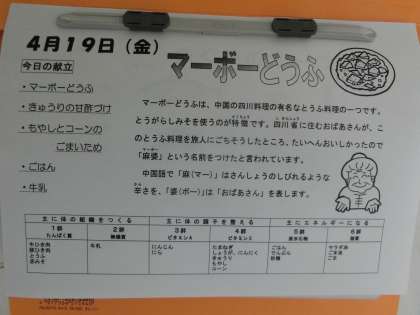 4月19日（金）
今日の献立
マーボーどうふ
・マーボーどうふ
・きゅうりの甘酢づけ
・もやしとコーンの
ごまいため
・ごはん
・牛乳
マーボーどうふは、中国の四川料理の有名なとうふ料理の一つです。
とうがらしみそを使うのが特徴です。四川省に住むおばあさんが、こ
のとうふ料理を旅人にごちそうしたところ、たいへんおいしかったので
「麻婆」という名前をつけたと言われています。
中国語で「麻（マー）」はさんしょうのしびれるような
辛さを、「婆（ボー）」は「おばあさん」を表します。
主に体の組織をつくる 主に体の調子を整える 主にエネルギーになる
1群 2群 3群 4群 5群 6群
たんぱく質 無機質 ビタミンA ビタミンC 炭水化物 脂質
牛ひき肉 牛乳 にんじん たまねぎ ごはん サラダ油
豚ひき肉 にら しょうが、にんにく でんぷん ごま油
とうふ きゅうり 砂糖 ごま
赤みそ もやし
コーン